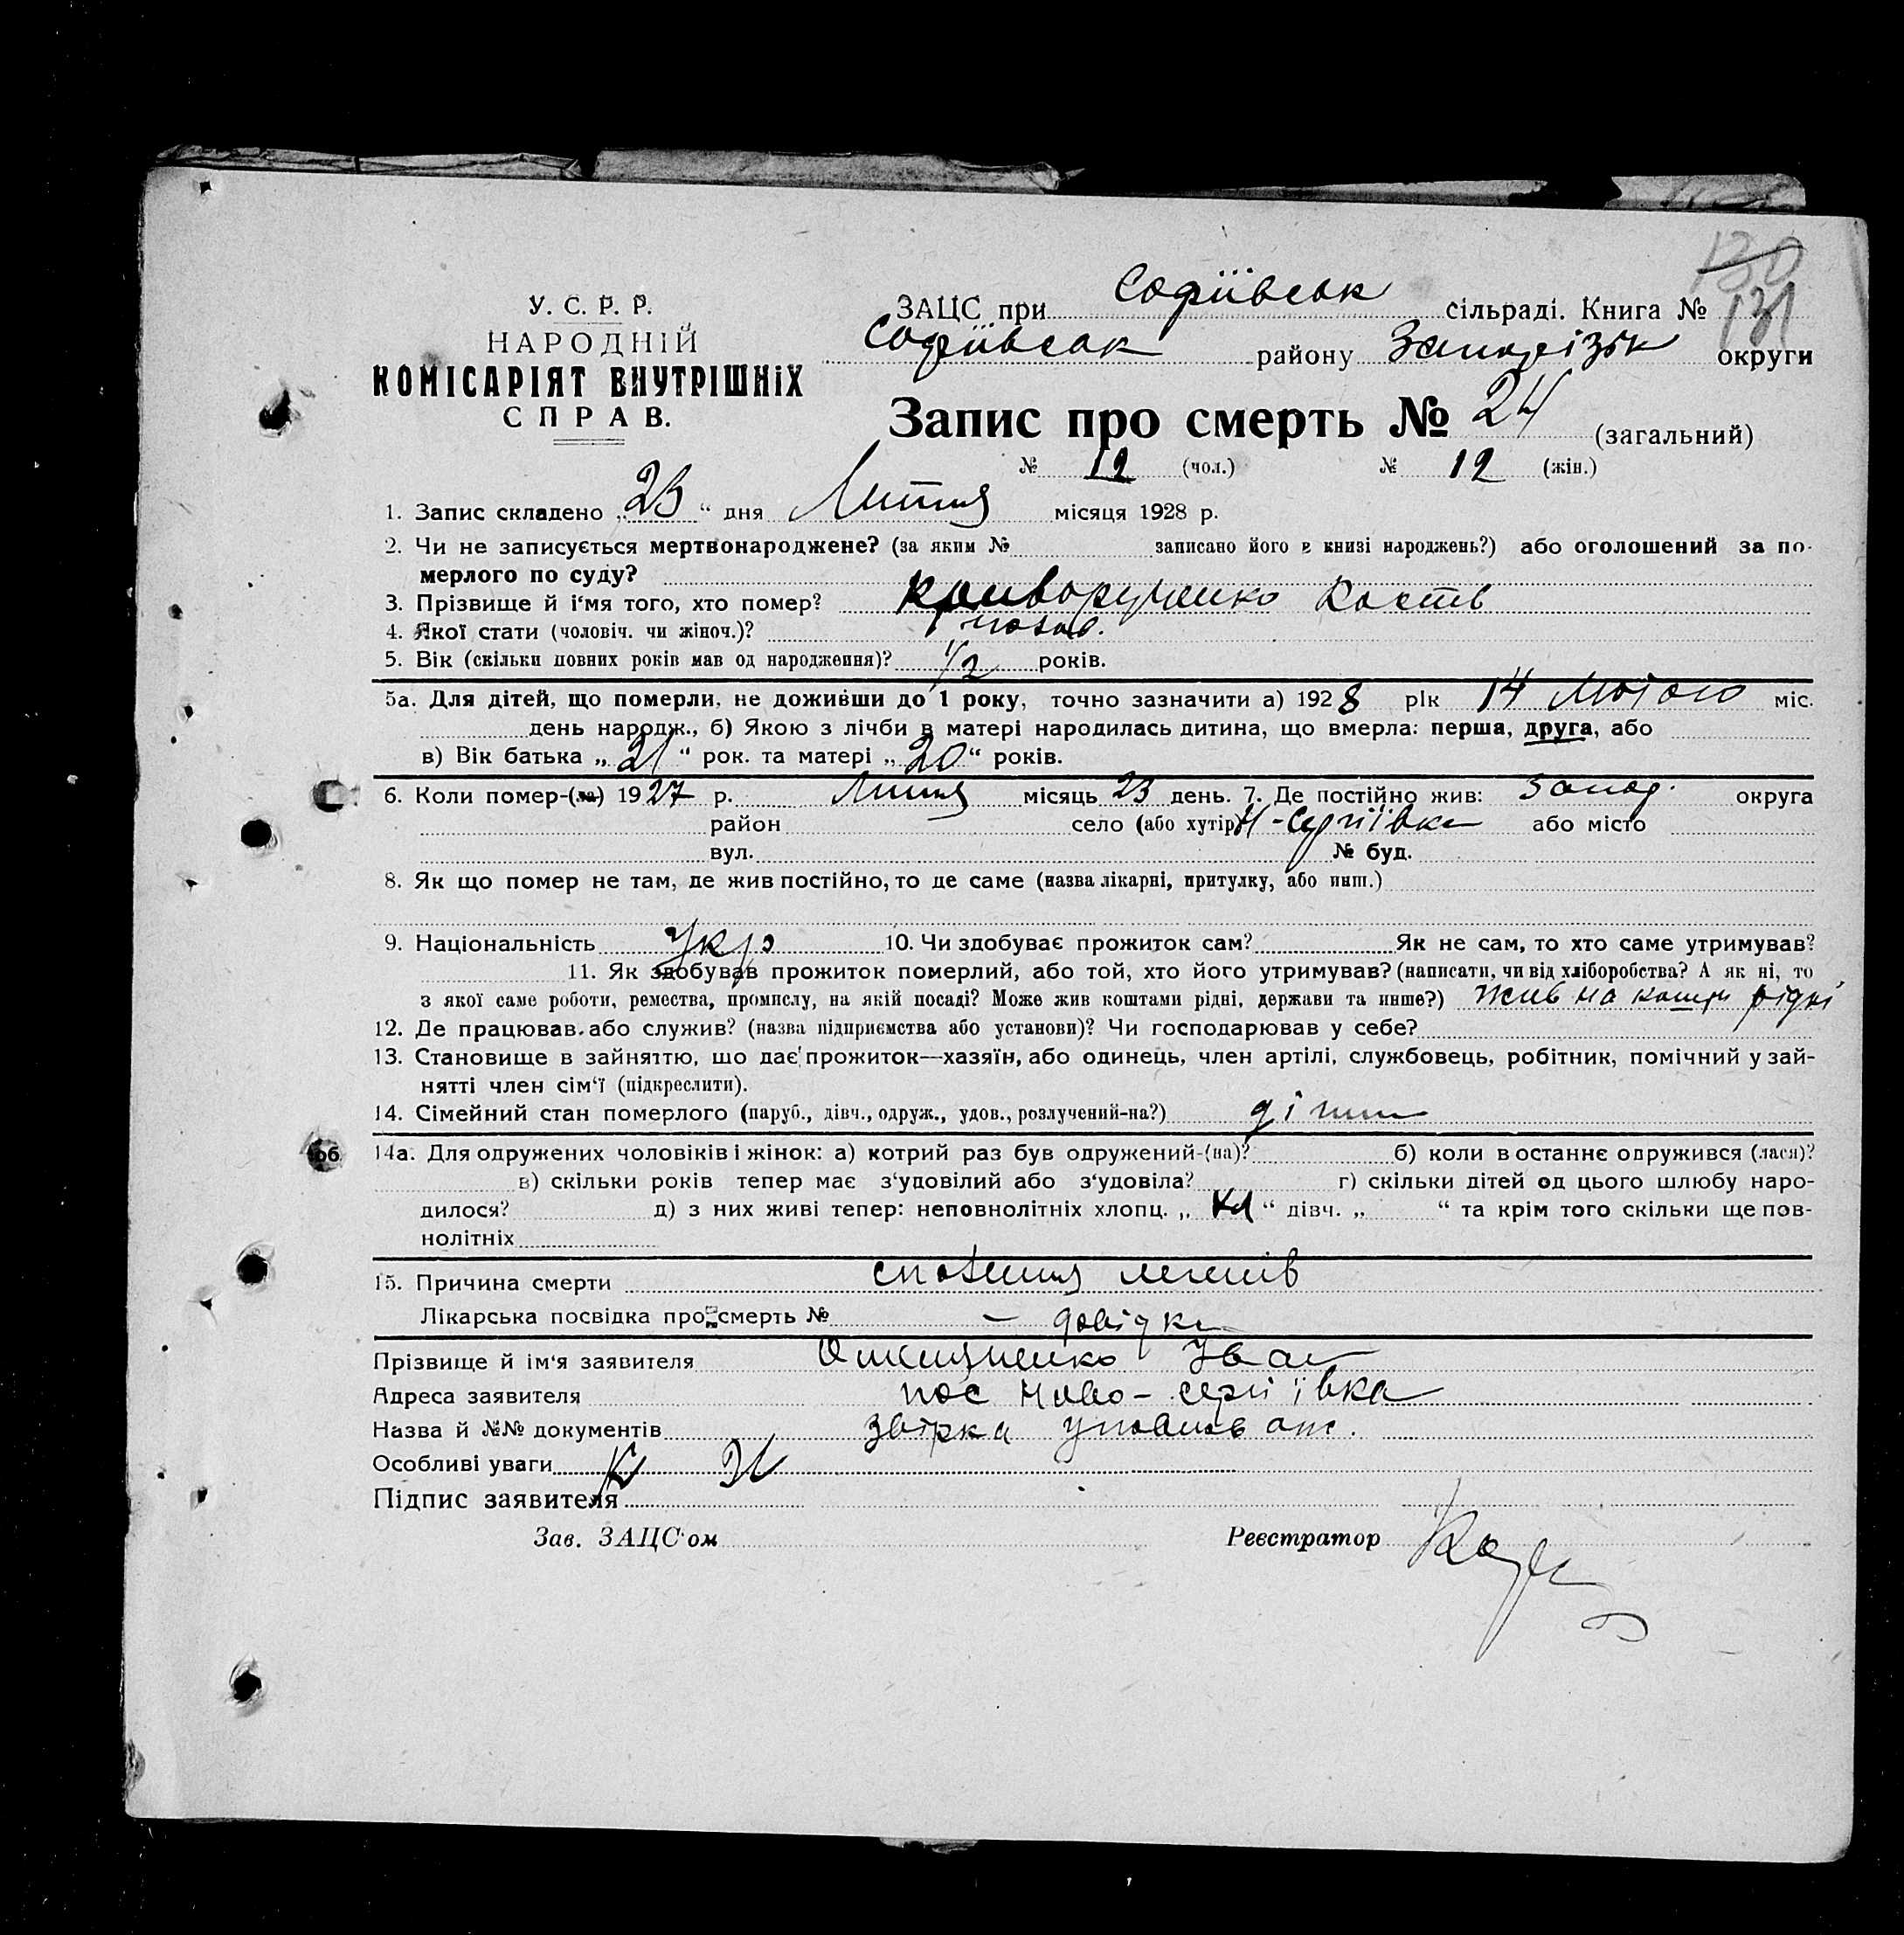 130
131
У. С. Р. Р.
НАРОДНІЙ
КОМІСАРІЯТ ВНУТРІШНІХ
СПРАВ.
ЗАЦС при Софіївськ сільраді. Книга №
Софіївськ району Запорізьк округи
Запис про смерть № 24 (загальний)
№ 12 (чол.) № 12 (жін.)
1. Запис складено „23“ дня Липня місяця 1928 р.
2. Чи не записується мертвонароджене? (за яким № записано його в книзі народжень?) або оголошений за по-
мерлого по суду?
3. Прізвище й і'мя того, хто помер? Криворученко Кость
4. Якої стати (чоловіч. чи жіноч.)? чолов.
5. Вік (скільки повних років мав од народження)? 1/2 років.
5а. Для дітей, що померли, не доживши до 1 року, точно зазначити а) 1928 рік 14 Лютого міс.
день народж., б) Якою з лічби в матері народилась дитина, що вмерла: перша, друга, або
в) Вік батька „21“ рок. та матері „20“ років.
6. Коли помер-(ла) 1927 р. Липня місяць 23 день. 7. Де постійно жив: Запор. округа
район село (або хутір) Н-Сергіївка або місто
вул. № буд.
8. Як що помер не там, де жив постійно, то де саме (назва лікарні, притулку, або инш.)
9. Національність Укр 10. Чи здобуває прожиток сам? Як не сам, то хто саме утримував?
11. Як здобував прожиток померлий, або той, хто його утримував? (написати, чи від хліборобства? А як ні, то
з якої саме роботи, ремества, промислу, на якій посаді? Може жив коштами рідні, держави та инше?) Жив на кошти рідні
12. Де працював або служив? (назва підприємства або установи)? Чи господарював у себе?
13. Становище в зайняттю, що дає прожиток—хазяїн, або одинець, член артілі, службовець, робітник, помічний у зай-
нятті член сім'ї (підкреслити).
14. Сімейний стан померлого (паруб., дівч., одруж., удов., розлучений-на?)
14а. Для одружених чоловіків і жінок: а) котрий раз був одружений-(на)? б) коли востаннє одружився (лася)?
в) скільки років тепер має з'удовілий або з'удовіла? г) скільки дітей од цього шлюбу наро-
дилося? д) з них живі тепер: неповнолітніх хлопц. „ “ дівч. „ “ та крім того скільки ще пов-
нолітніх
15. Причина смерти легенів
Лікарська посвідка про смерть № — довідка
Прізвище й ім'я заявителя Іван
Адреса заявителя пос Ново-Сергіївка
Назва й №№ документів
Особливі уваги
Підпис заявителя
Зав. ЗАЦС'ом Реєстратор